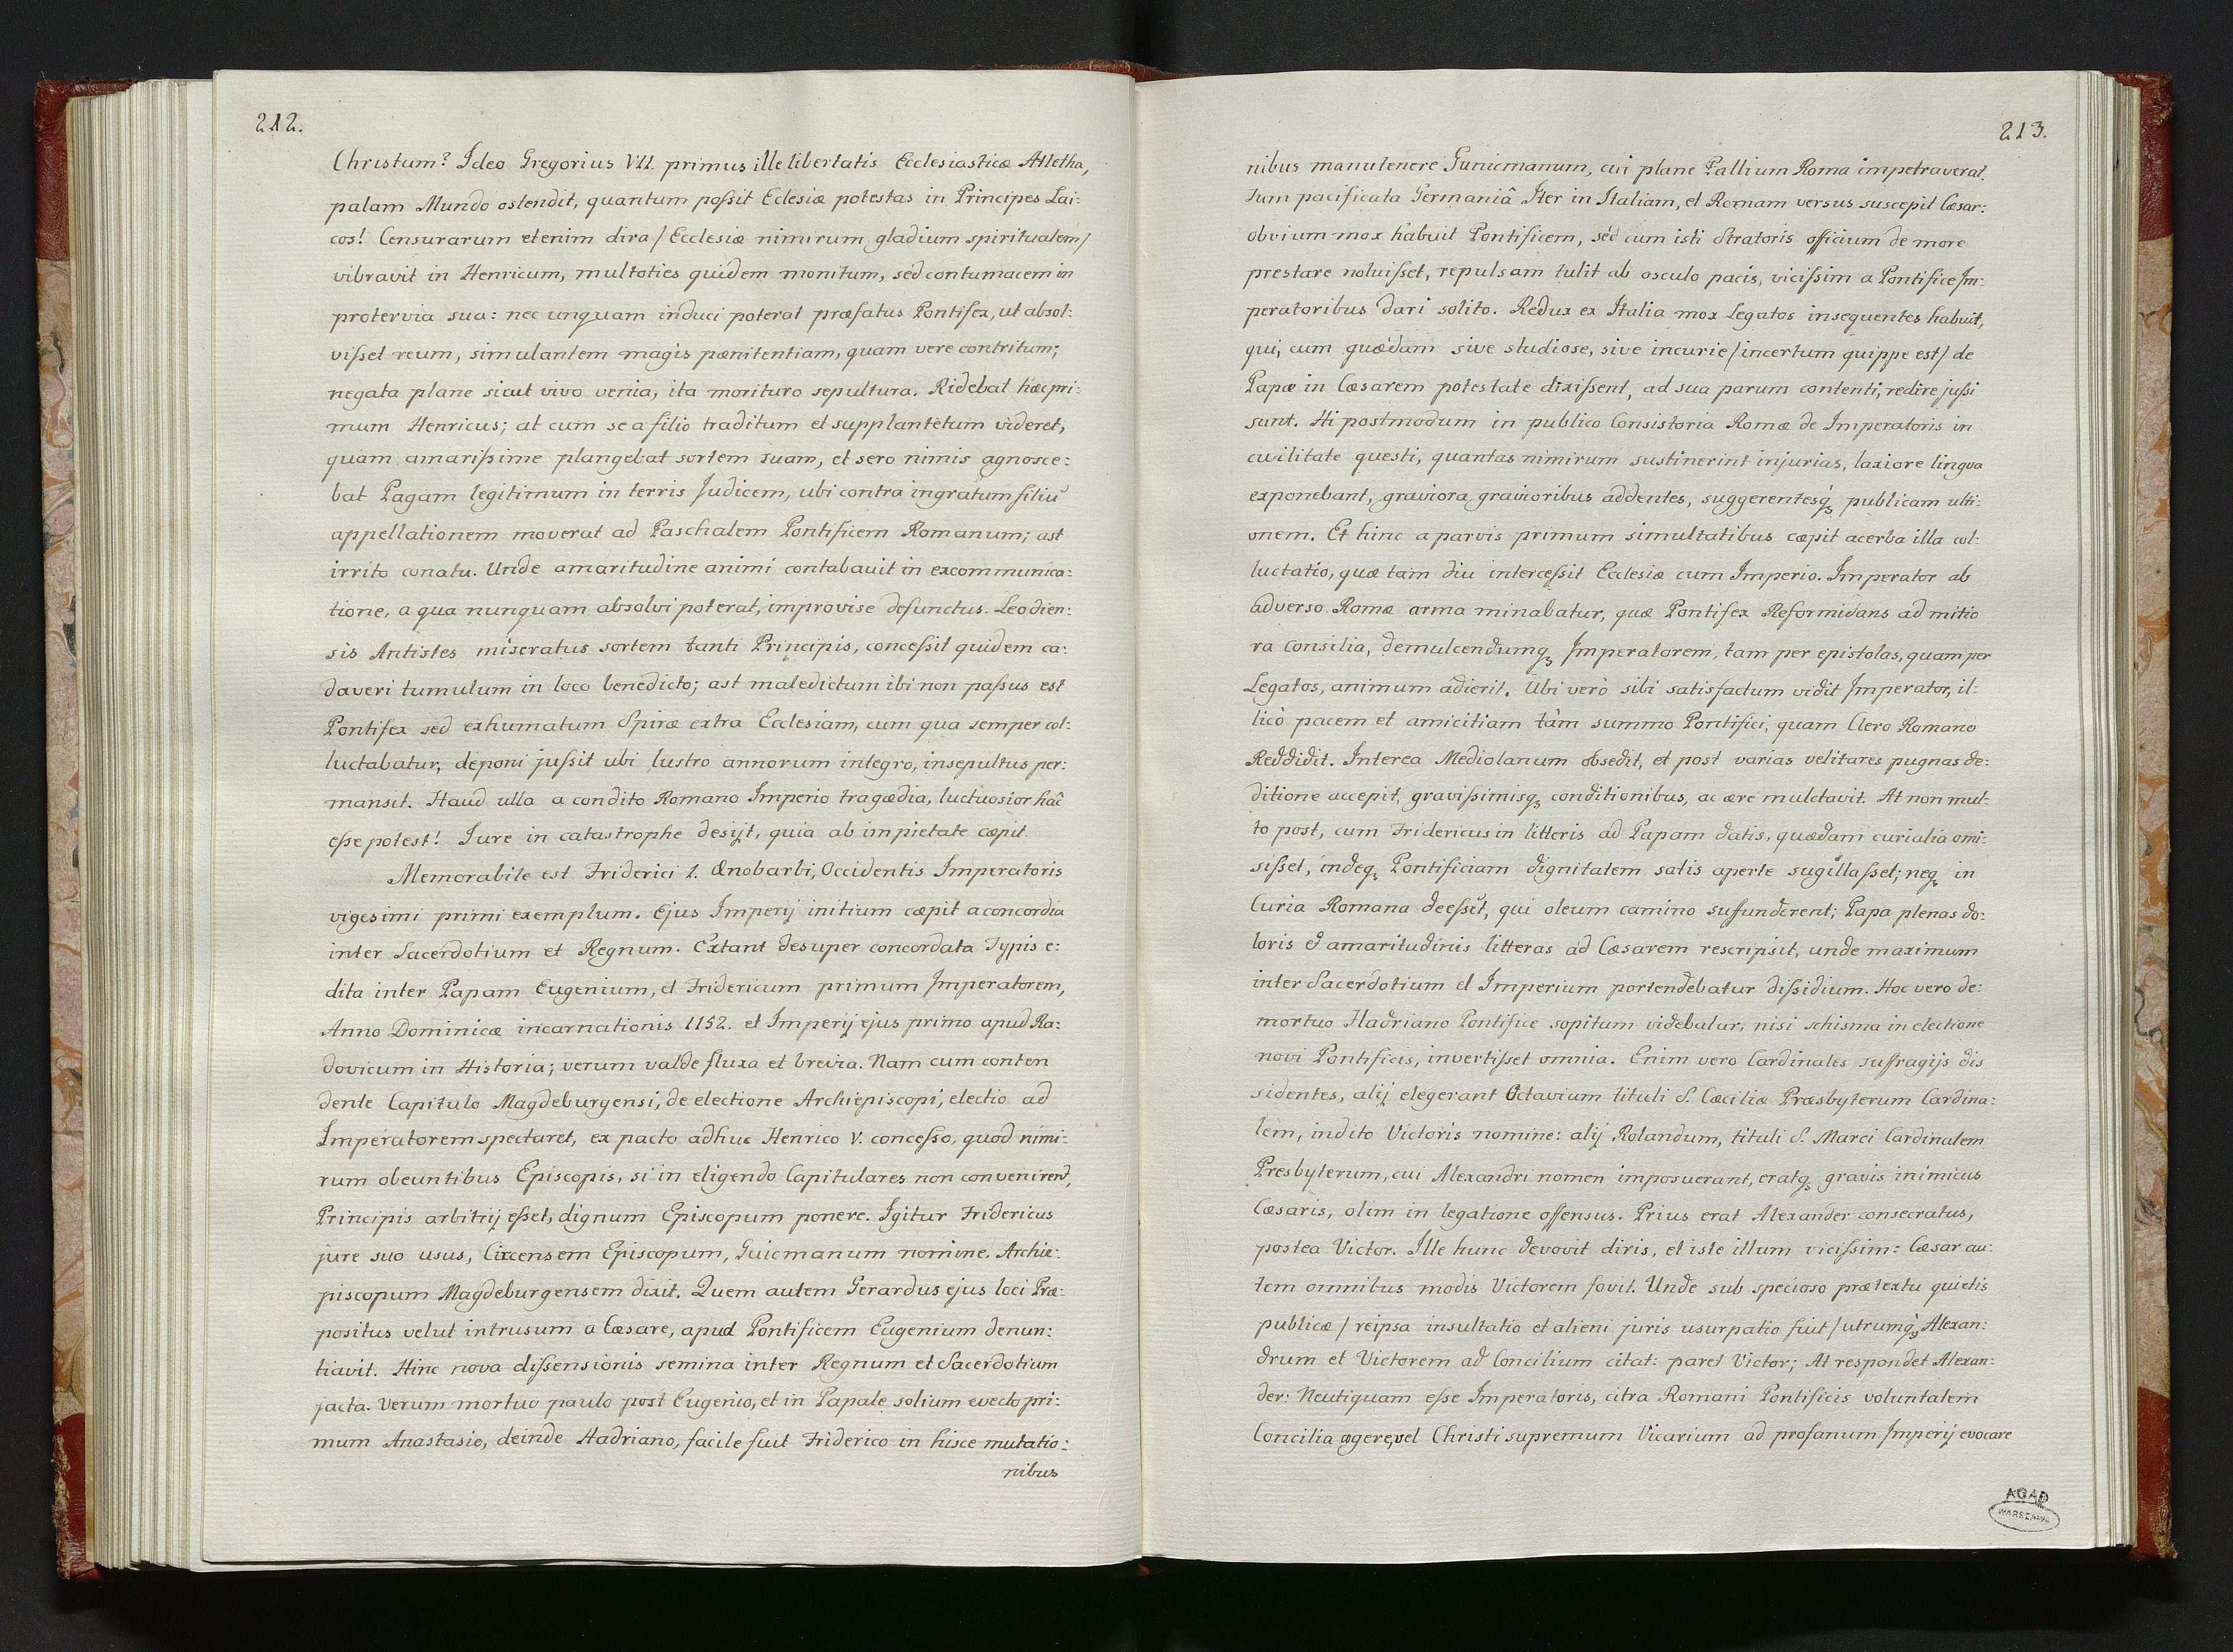 212.
Christum? Ideo Gregorius VII. primus ille libertatis Ecclesiasticæ Atletha,
palam Mundo ostendit, quantum poſsit Eclesiæ potestas in Principes Lai:
cos! Censurarum etenim dira / Ecclesiæ nimirum gladium spiritualem /
vibravit in Henricum, multoties quidem monitum, sed contumacem in
protervia sua: nec unquam induci poterat præfatus Pontifex, ut absol:
viſset reum, simulantem magis pænitentiam, quam vere contritum;
negata plane sicut vivo venia, ita morituro sepultura. Ridebat hæc pri:
mum Henricus; at cum se a filio traditum et supplantetum videret,
quam amariſsime plangebat sortem suam, et sero nimis agnosce:
bat Pagam legitimum in terris Judicem, ubi contra ingratum filiũ
appellationem moverat ad Paschalem Pontificem Romanum; ast
irrito conatu. Unde amaritudine animi contabavit in excommunica:
tione, a qua nunquam absolvi poterat, improvise defunctus. Leodien:
sis Antistes miseratus sortem tanti Principis, conceſsit quidem ca:
daveri tumulum in loco benedicto; ast maledictum ibi non paſsus est
Pontifex sed exhumatum Spiræ extra Ecclesiam, cum qua semper col:
luctabatur, deponi juſsit ubi lustro annorum integro, insepultus per:
mansit. Haud ulla a condito Romano Imperio tragædia, luctuosior hâc
eſse potest! Jure in catastrophe desijt, quia ab impietate cæpit.
Memorabile est Friderici 1. Ænobarbi, Occidentis Imperatoris
vigesimi primi exemplum. Ejus Imperij initium cæpit a concordia
inter Sacerdotium et Regnum. Extant desuper concordata Typis e:
dita inter Papam Eugenium, et Fridericum primum Imperatorem,
Anno Dominicæ incarnationis 1152. et Imperij ejus primo apud Ra:
dovicum in Historia; verum valde fluxa et brevia. Nam cum conten
dente Capitulo Magdeburgensi, de electione Archiepiscopi, electio ad
Imperatorem spectaret, ex pacto adhuc Henrico V. conceſso, quod nimi:
rum obeuntibus Episcopis, si in eligendo Capitulares non convenirent,
Principis arbitrij eſset, dignum Episcopum ponere. Igitur Fridericus
jure suo usus, Circensem Episcopum, Guicmanum nomine. Archie:
piscopum Magdeburgensem dixit. Quem autem Gerardus ejus loci Præ:
positus velut intrusum a Cæsare, apud Pontificem Eugenium denun:
tiavit. Hinc nova diſsensionis semina inter Regnum et Sacerdotium
jacta. Verum mortuo paulo post Eugenio, et in Papale solium evecto pri:
mum Anastasio, deinde Hadriano, facile fuit Friderico in hisce mutatio:
nibus
213.
nibus manutenere Gunicmanum, cui plane Pallium Roma impetraverat.
Tum pacificata Germaniâ Iter in Italiam, et Romam versus suscepit Cæsar:
obvium mox habuit Pontificem, sed cum isti Stratoris officium de more
prestare noluiſset, repulsam tulit ab osculo pacis, viciſsim a Pontifice Im:
peratoribus dari solito. Redux ex Italia mox Legatos insequentes habuit,
qui, cum quædam sive studiose, sive incurie / incertum quippe est / de
Papæ in Cæsarem potestate dixiſsent, ad sua parum contenti, redire juſsi
sunt. Hi postmodum in publico Consistoria Romæ de Imperatoris in
civilitate questi, quantas nimirum sustinerint injurias, laxiore lingva
exponebant, graviora gravioribus addentes, suggerentesq̀ȝ publicam ulti:
onem. Et hinc a parvis primum simultatibus cæpit acerba illa col:
luctatio, quæ tam diu interceſsit Ecclesiæ cum Imperio. Imperator ab
adverso Romæ arma minabatur, quæ Pontifex Reformidans ad mitio
ra Consilia, demulcendumqȝ Imperatorem, tam per epistolas, quam per
Legatos, animum adierit. Ubi verò sibi satisfactum vidit Imperator, il:
licò pacem et amicitiam tàm summo Pontifici, quam Clero Romano
Reddidit. Interea Mediolanum obsedit, et post varias velitares pugnas de:
ditione accepit, graviſsimisqȝ conditionibus, ac ære mulctavit. At non mul:
to post, cum Fridericus in litteris ad Papam datis, quædam curialia omi:
siſset, indeqȝ Pontificiam dignitatem satis aperte sugillaſset; neqȝ in
Curia Romana deeſset, qui oleum camino suffunderent; Papa plenas do:
loris et amaritudinis litteras ad Cæsarem rescripsit, unde maximum
inter Sacerdotium et Imperium portendebatur diſsidium. Hoc vero de:
mortuo Hadriano Pontifice sopitum videbatur, nisi schisma in electione
novi Pontificis, invertiſset omnia. Enim vero Cardinales suffragijs dis
sidentes, alij elegerant Octavium tituli S. Cæciliæ Præsbyterum Cardina:
lem, indito Victoris nomine: alij Rolandum, tituli S. Marci Cardinalem
Presbyterum, cui Alexandri nomen imposuerant, eratqȝ gravis inimicus
Cæsaris, olim in legatione offensus. Prius erat Alexander consecratus,
postea Victor. Ille hunc devovit diris, et iste illum viciſsim: Cæsar au:
tem omnibus modis Victorem fovit. Unde sub specioso prætextu quietis
publicæ / reipsa insultatio et alieni juris usurpatio fuit / utrumq̀ȝ Alexan:
drum et Victorem ad Concilium citat: paret Victor; At respondet Alexan:
der: Neutiquam eſse Imperatoris, citra Romani Pontificis voluntatem
Concilia agere, vel Christi supremum Vicarium ad profanum Imperij evocare
AGAD
WARSZAWA